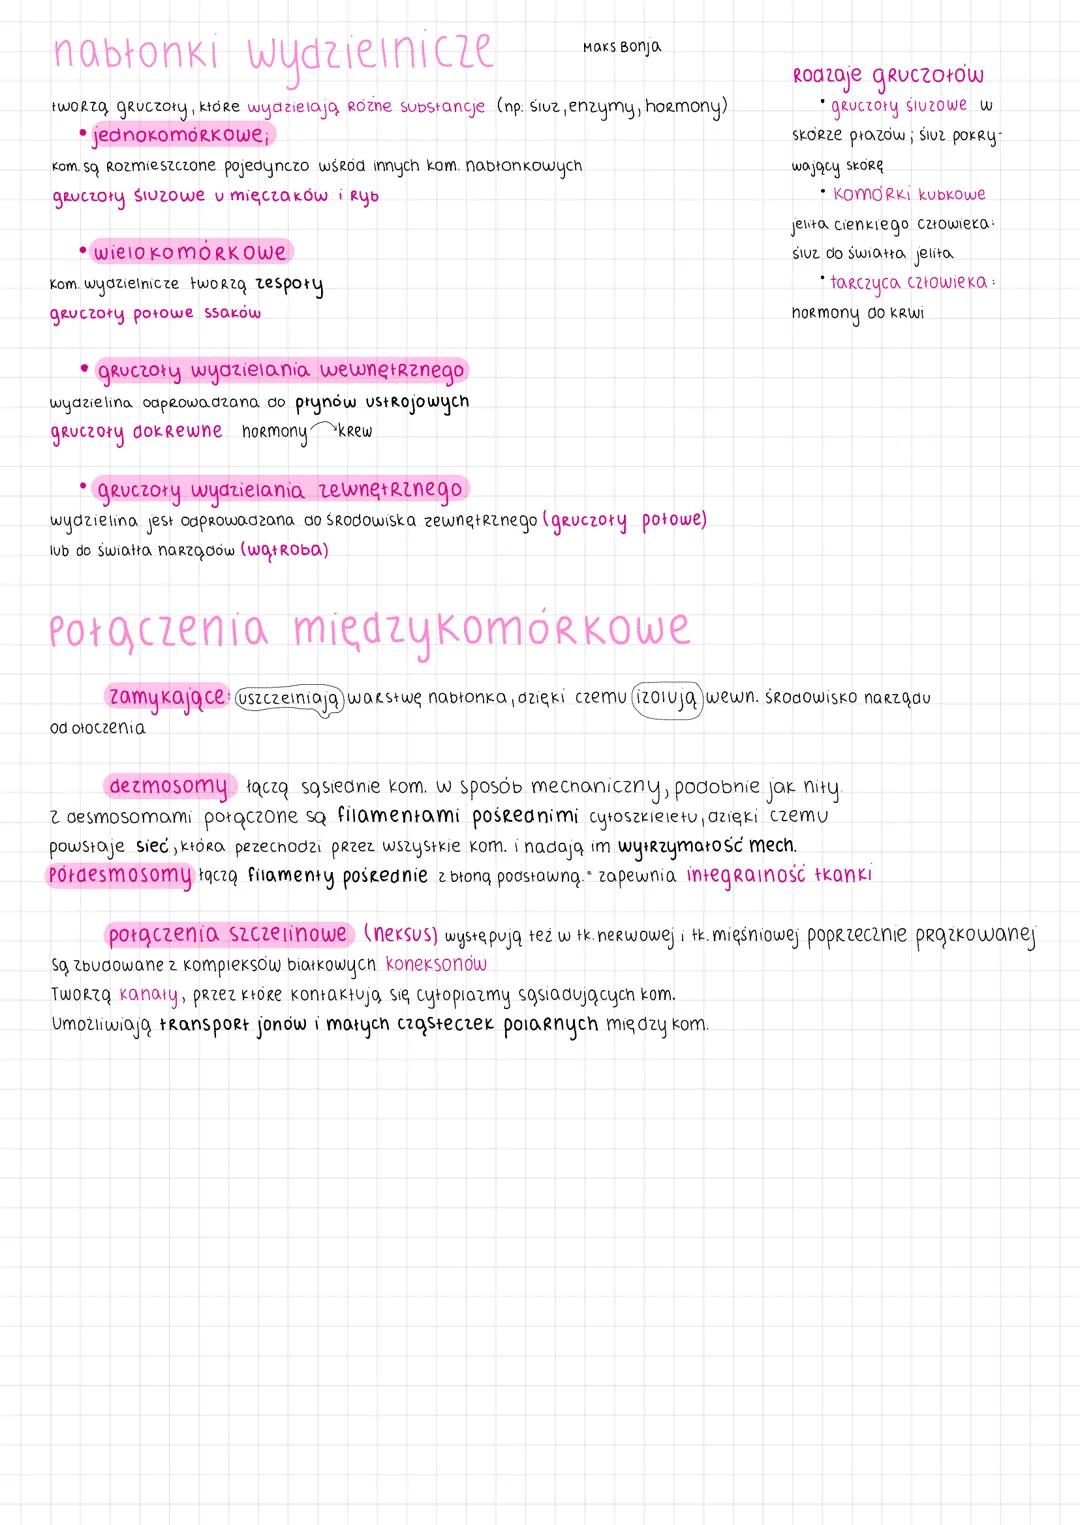 nabłonki wydzielnicze
Maks Bonja
tworzą gruczoły, które wydzielają różne substancje (np. śluz, enzymy, hormony)
• jednokomórkowe;
kom. są rozmieszczone pojedynczo wśród innych kom. nabłonkowych
gruczoły śluzowe u mięczaków i ryb
• wielokomórkowe
kom. wydzielnicze tworzą zespoły
gruczoły potowe ssaków
• gruczoły wydzielania wewnętrznego
wydzielina odprowadzana do płynów ustrojowych
gruczoły dokrewne hormony → krew
• gruczoły wydzielania zewnętrznego
wydzielina jest odprowadzana do środowiska zewnętrznego (gruczoły potowe)
lub do światła narządów (wątroba)
Rodzaje gruczołów
• gruczoły śluzowe w
skórze płazów; śluz pokry-
wający skórę
• komórki kubkowe
jelita cienkiego człowieka:
śluz do światła jelita
• tarczyca człowieka:
hormony do krwi
Połączenia międzykomórkowe
zamykające: uszczelniają warstwę nabłonka, dzięki czemu izolują wewn. środowisko narządu
od otoczenia
dezmosomy łączą sąsiednie kom. w sposób mechaniczny, podobnie jak nity.
z desmosomami połączone są filamentami pośrednimi cytoszkieletu, dzięki czemu
powstaje sieć, która przechodzi przez wszystkie kom. i nadają im wytrzymałość mech.
Półdesmosomy łączą filamenty pośrednie z błoną podstawną. • zapewnia integralność tkanki
połączenia szczelinowe (neksus) występują też w tk. nerwowej i tk. mięśniowej poprzecznie prążkowanej
Są zbudowane z kompleksów białkowych koneksonów
Tworzą kanały, przez które kontaktują się cytoplazmy sąsiadujących kom.
Umożliwiają transport jonów i małych cząsteczek polarnych między kom.